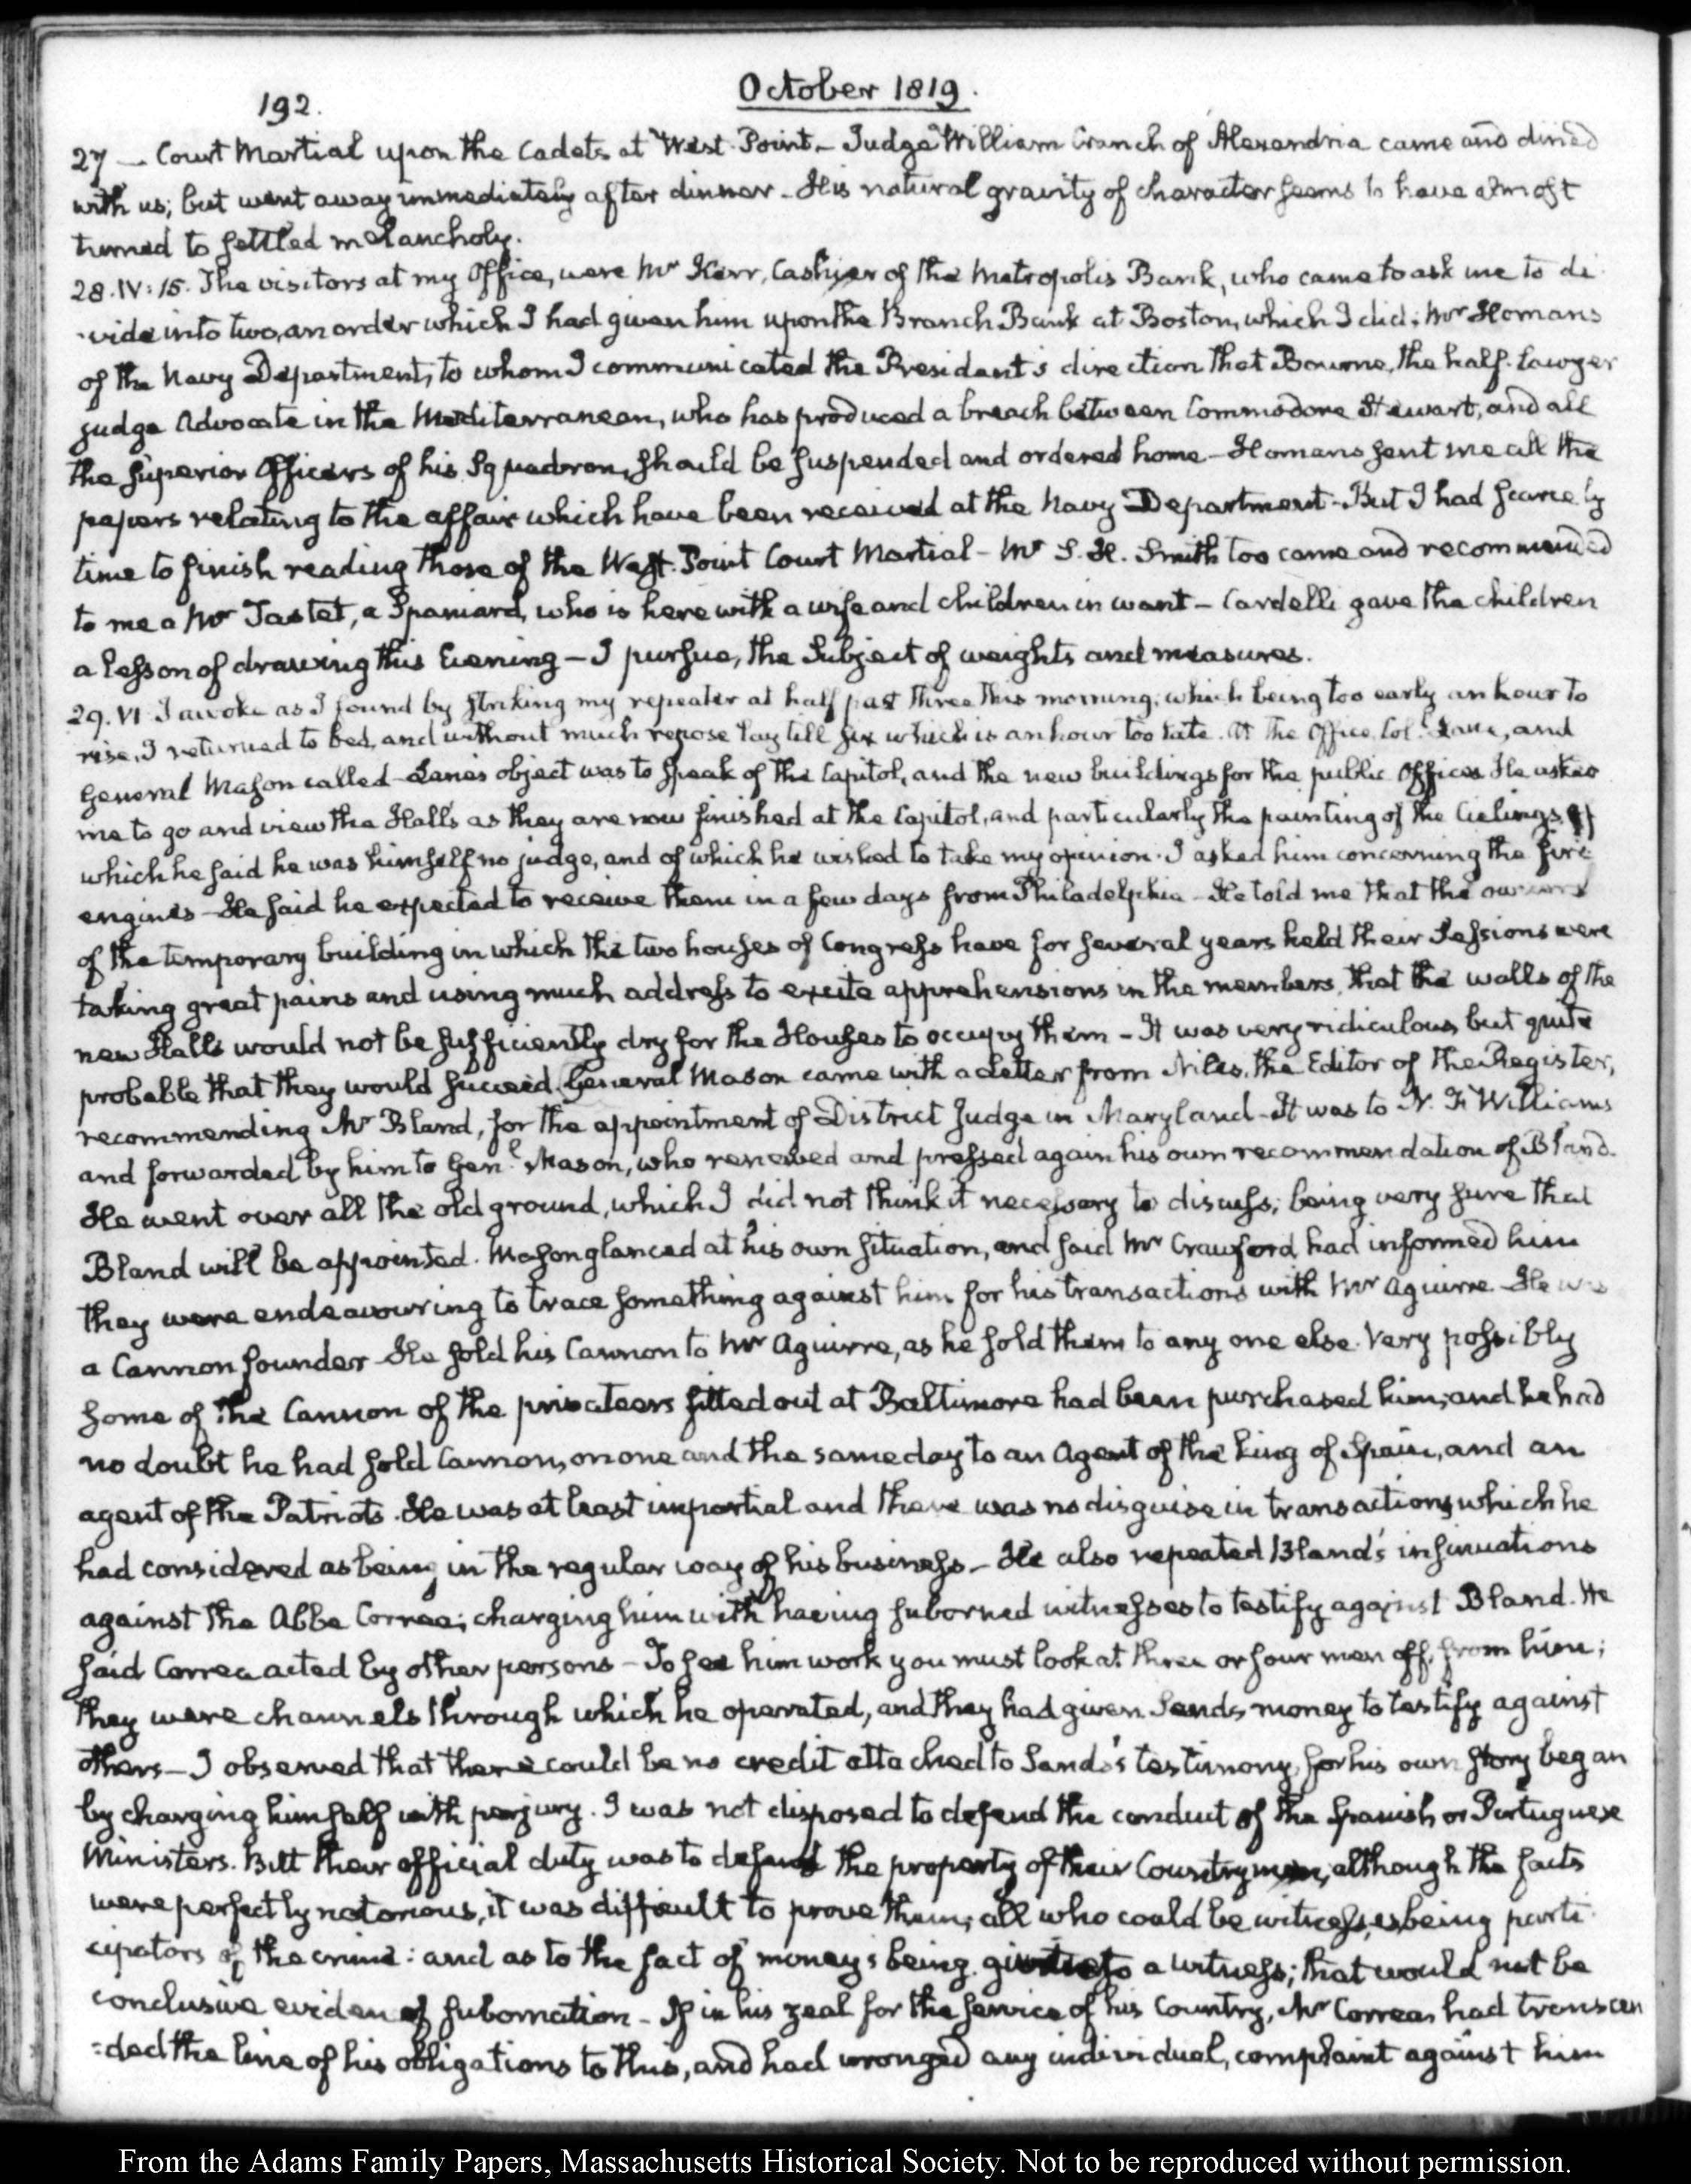 192.
October 1819.
27 — Court Martial upon the Cadets at West-Point — Judge William Cranch of Alexandria came and dined
with us; but went away immediately after dinner — His natural gravity of character seems to have almost
turned to settled melancholy.
28. IV: 15. The visitors at my Office, were Mr Kerr, Cashier of the Metropolis Bank, who came to ask me to di-
-vide into two, an order which I had given him upon the Branch Bank at Boston, which I did; Mr Homans
of the Navy Department, to whom I communicated the President's direction that Bourne, the half-lawyer
judge Advocate in the Mediterranean, who has produced a breach between Commodore Stewart, and all
the Superior Officers of his Squadron, should be suspended and ordered home — Homans sent me all the
papers relating to the affair which have been received at the Navy Department — But I had scarcely
time to finish reading those of the West-Point Court Martial — Mr S. H. Smith too came and recommended
to me a Mr Tastet, a Spaniard, who is here with a wife and children in want — Cardelli gave the children
a lesson of drawing this Evening — I pursue, the Subject of weights and measures.
29. VI. I awoke as I found by striking my repeater at half past three this morning; which being too early an hour to
rise, I returned to bed, and without much repose lay till six which is an hour too late. At the Office, Col. Lane, and
General Mason called — Lane's object was to speak of the Capitol, and the new buildings for the public Offices He asked
me to go and view the Halls as they are now finished at the Capitol, and particularly the painting of the Cielings, of
which he said he was himself no judge, and of which he wished to take my opinion. I asked him concerning the fire
engines — He said he expected to receive them in a few days from Philadelphia — He told me that the owners
of the temporary building in which the two houses of Congress have for several years held their Sessions were
taking great pains and using much address to excite apprehensions in the members, that the walls of the
new Halls would not be sufficiently dry for the Houses to occupy them — It was very ridiculous, but quite
probable that they would succeed. General Mason came with a Letter from Niles, the Editor of the Register,
recommending Mr Bland, for the appointment of District Judge in Maryland — It was to N. F. Williams
and forwarded by him to Genl. Mason, who renewed and pressed again his own recommendation of Bland.
He went over all the old ground, which I did not think it necessary to discuss; being very sure that
Bland will be appointed. Mason glanced at his own situation, and said Mr Crawford had informed him
they were endeavouring to trace something against him for his transactions with Mr Aguirre — He was
a Cannon founder — He sold his Cannon to Mr Aguirre, as he sold them to any one else. Very possibly
some of the Cannon of the privateers fitted out at Baltimore had been purchased him; and he had
no doubt he had sold Cannon, on one and the same day to an Agent of the King of Spain, and an
agent of the Patriots. He was at least impartial and there was no disguise in transactions which he
had considered as being in the regular way of his business — He also repeated Bland's insinuations
against the Abbe Correa; charging him with having suborned witnesses to testify against Bland. He
said Correa acted by other persons — To see him work you must look at three or four men off, from him;
they were channels through which he operated, and they had given Sands money to testify against
others — I observed that there could be no credit attached to Sands's testimony, for his own story began
by charging himself with perjury. I was not disposed to defend the conduct of the Spanish or Portuguese
Ministers. But their official duty was to defend the property of their Countrymen, although the facts
were perfectly notorious, it was difficult to prove them; all who could be witnesses, being parti-
cipators of the crime: and as to the fact of money's being given to a witness; that would not be
conclusive eviden of subornation — If in his zeal for the service of his Country, Mr Correa, had transcen
=ded the line of his obligations to this, and had wronged any individual, complaint against him
From the Adams Family Papers, Massachusetts Historical Society. Not to be reproduced without permission.